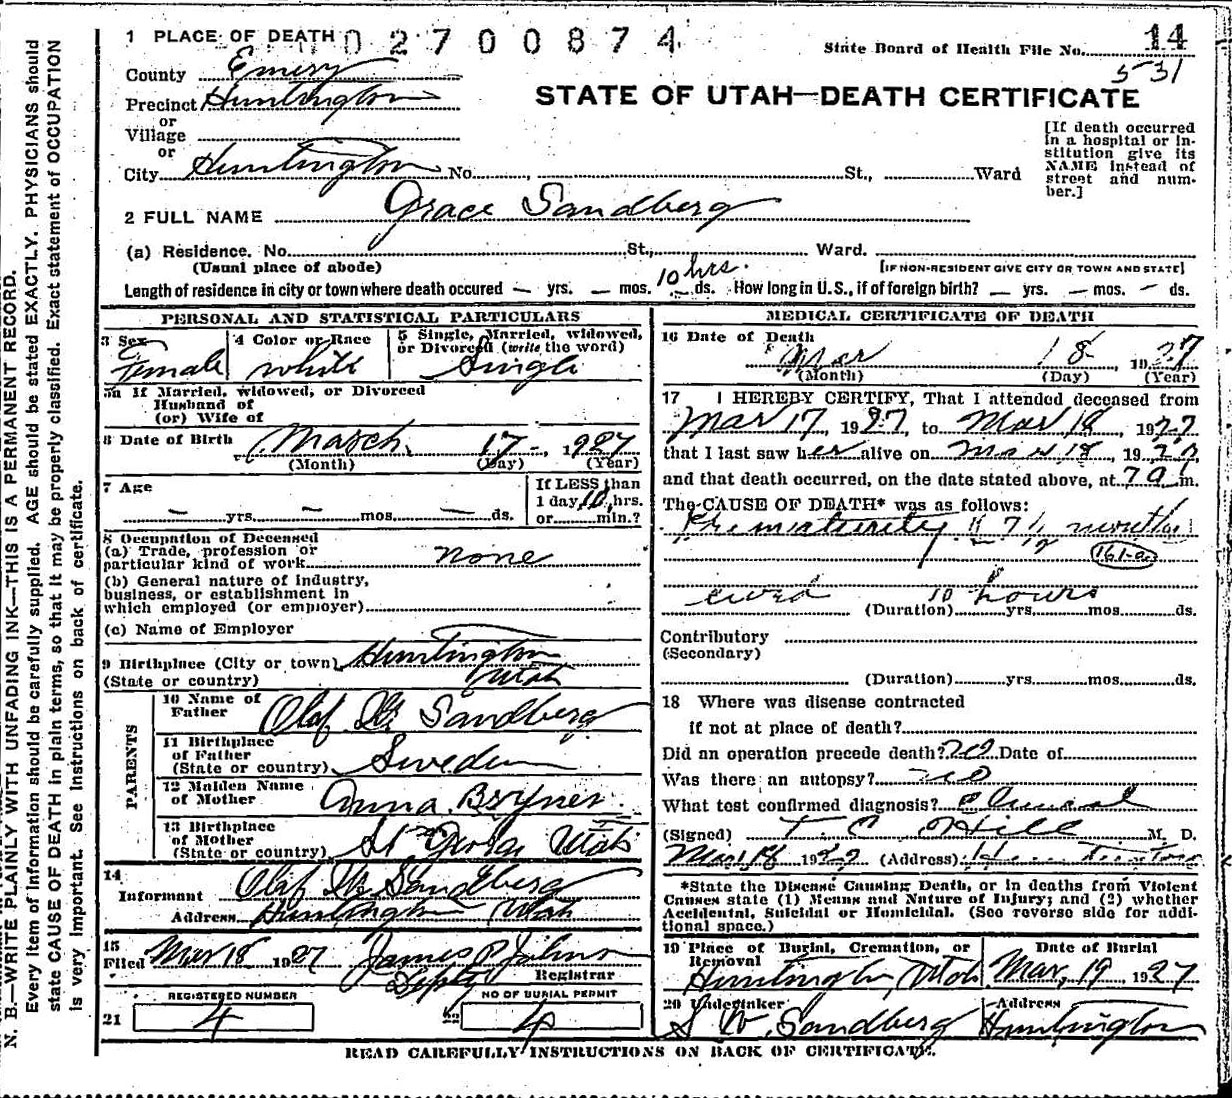 1 PLACE OF DEATH 02700874
State Board of Health File No. 14
531
County Emery
Precinct Huntington
or
Village
or
City Huntington No. , St., Ward
STATE OF UTAH—DEATH CERTIFICATE
[If death occurred
in a hospital or in-
stitution give its
NAME instead of
street and num-
ber.]
2 FULL NAME Grace Sandberg
(a) Residence. No. St., Ward.
(Usual place of abode) [IF NON-RESIDENT GIVE CITY OR TOWN AND STATE]
Length of residence in city or town where death occured — yrs. — mos. 10 hrs. ds. How long in U.S., if of foreign birth? — yrs. — mos. — ds.
PERSONAL AND STATISTICAL PARTICULARS
3 Sex 4 Color or Race 5 Single, Married, widowed,
or Divorced (write the word)
Female white Single
5a If Married, widowed, or Divorced
Husband of
(or) Wife of
6 Date of Birth March 17, 1927
(Month) (Day) (Year)
7 Age If LESS than
1 day, 10 hrs.
— yrs. — mos. — ds. or min.?
8 Occupation of Deceased
(a) Trade, profession or
particular kind of work none
(b) General nature of industry,
business, or establishment in
which employed (or employer)
(c) Name of Employer
9 Birthplace (City or town) Huntington
(State or country) Utah
PARENTS
10 Name of
Father Olaf W. Sandberg
11 Birthplace
of Father
(State or country) Sweden
12 Maiden Name
of Mother Anna Bryner
13 Birthplace
of Mother
(State or country) St George Utah
14
Informant Olaf W Sandberg
Address Huntington Utah
15
Filed Mar 18 1927 James P Johns
Registrar
Depty
REGISTERED NUMBER NO OF BURIAL PERMIT
21 4 22 4
MEDICAL CERTIFICATE OF DEATH
16 Date of Death
Mar 18 1927
(Month) (Day) (Year)
17 I HEREBY CERTIFY, That I attended deceased from
Mar 17, 1927, to Mar 18, 1927
that I last saw her alive on Mar 18, 1927
and that death occurred, on the date stated above, at 7 a m.
The CAUSE OF DEATH* was as follows:
Prematurity 7 1/2 months
161-a
lived 10 hours
(Duration) yrs. mos. ds.
Contributory
(Secondary)
(Duration) yrs. mos. ds.
18 Where was disease contracted
if not at place of death?
Did an operation precede death? no Date of
Was there an autopsy? no
What test confirmed diagnosis? Clinical
(Signed) T. C. Hill M. D.
Mar 18 1927 (Address) Huntington
*State the Disease Causing Death, or in deaths from Violent
Causes state (1) Means and Nature of Injury; and (2) whether
Accidental, Suicidal or Homicidal. (See reverse side for addi-
tional space.)
19 Place of Burial, Cremation, or Date of Burial
Removal
Huntington, Utah Mar, 19 1927
20 Undertaker Address
S W Sandberg Huntington
READ CAREFULLY INSTRUCTIONS ON BACK OF CERTIFICATE.
N. B.—WRITE PLAINLY WITH UNFADING INK—THIS IS A PERMANENT RECORD.
Every item of information should be carefully supplied. AGE should be stated EXACTLY. PHYSICIANS should
state CAUSE OF DEATH in plain terms, so that it may be properly classified. Exact statement of OCCUPATION
is very important. See instructions on back of certificate.